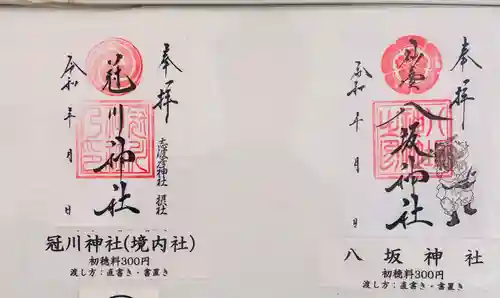 奉拝
冠川神社
志波彦神社 摂社
令和 年 月 日
冠川神社(境内社)
初穂料300円
渡し方：直書き・書置き
奉拝
八坂神社
令和 年 月 日
八坂神社
初穂料300円
渡し方：直書き・書置き